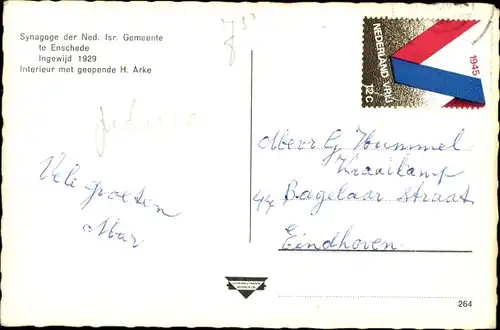 Synagoge der Ned. Isr. Gemeente
te Enschede
Ingewijd 1929
Interieur met geopende H. Arke
NEDERLAND VRIJ
12 c
1945
Vele groeten
Mar
Mevr G Hummel
Kraaikamp
44 Bagelaar straat
Eindhoven
264